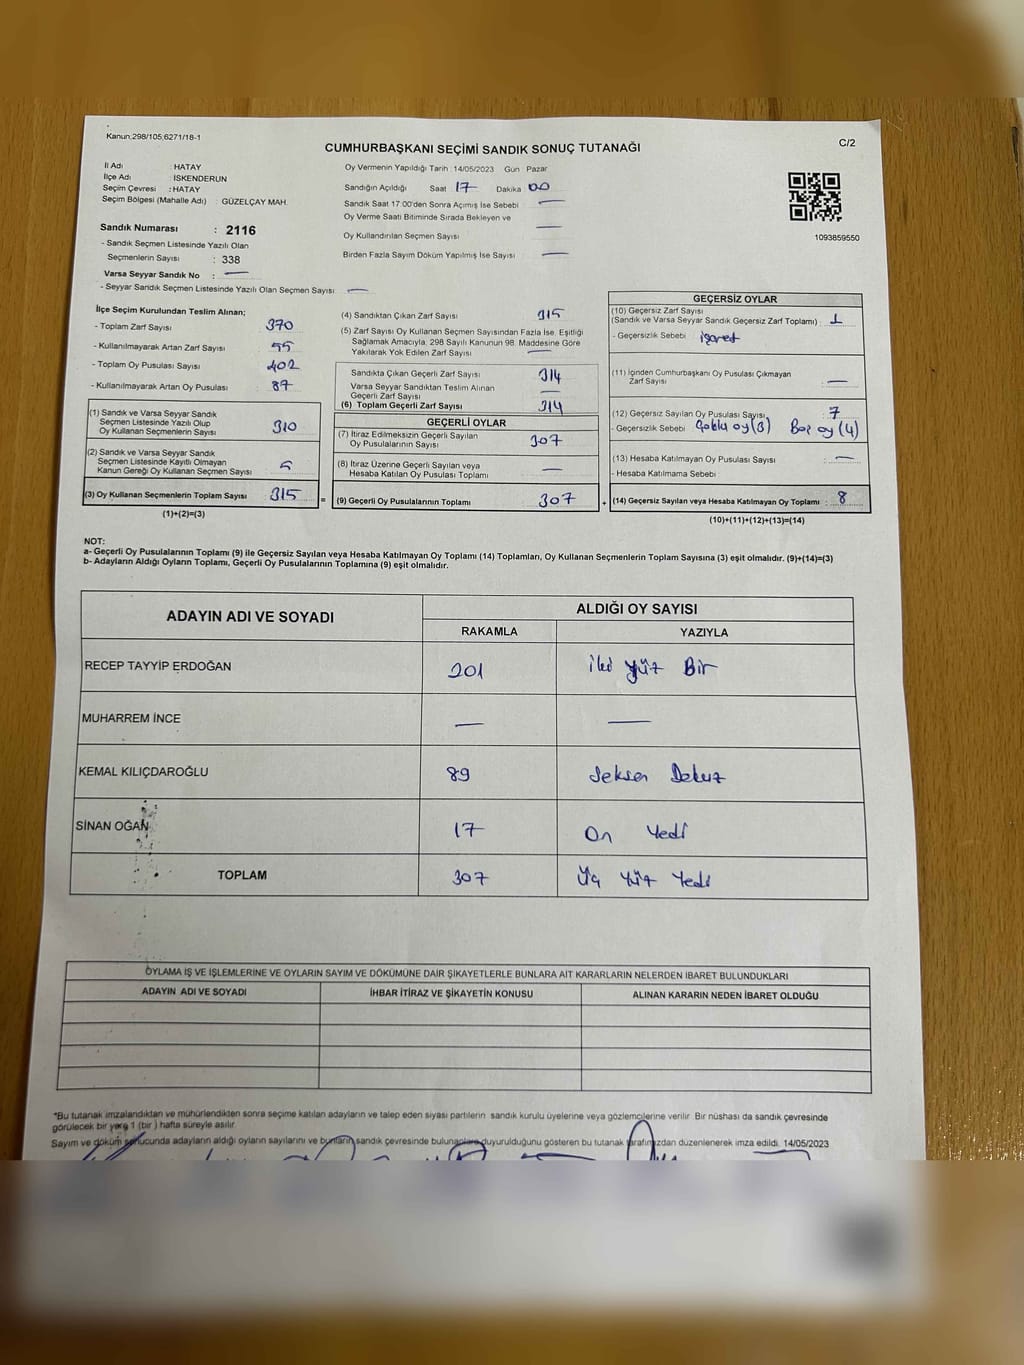 Kanun:298/105,6271/18-1
CUMHURBAŞKANI SEÇİMİ SANDIK SONUÇ TUTANAĞI
C/2
İl Adı : HATAY
İlçe Adı : İSKENDERUN
Seçim Çevresi : HATAY
Seçim Bölgesi (Mahalle Adı) : GÜZELÇAY MAH.
Sandık Numarası : 2116
- Sandık Seçmen Listesinde Yazılı Olan
Seçmenlerin Sayısı : 338
Varsa Seyyar Sandık No : —
- Seyyar Sandık Seçmen Listesinde Yazılı Olan Seçmen Sayısı : —
Oy Vermenin Yapıldığı Tarih : 14/05/2023 Gün Pazar
Sandığın Açıldığı Saat 17 Dakika 00
Sandık Saat 17:00'den Sonra Açımış İse Sebebi —
Oy Verme Saati Bitiminde Sırada Bekleyen ve
Oy Kullandırılan Seçmen Sayısı —
Birden Fazla Sayım Döküm Yapılmış İse Sayısı —
1093859550
İlçe Seçim Kurulundan Teslim Alınan;
- Toplam Zarf Sayısı 370
- Kullanılmayarak Artan Zarf Sayısı 55
- Toplam Oy Pusulası Sayısı 402
- Kullanılmayarak Artan Oy Pusulası 87
(1) Sandık ve Varsa Seyyar Sandık
Seçmen Listesinde Yazılı Olup
Oy Kullanan Seçmenlerin Sayısı 310
(2) Sandık ve Varsa Seyyar Sandık
Seçmen Listesinde Kayıtlı Olmayan
Kanun Gereği Oy Kullanan Seçmen Sayısı 5
(3) Oy Kullanan Seçmenlerin Toplam Sayısı 315 =
(1)+(2)=(3)
(4) Sandıktan Çıkan Zarf Sayısı 315
(5) Zarf Sayısı Oy Kullanan Seçmen Sayısından Fazla İse, Eşitliği
Sağlamak Amacıyla, 298 Sayılı Kanunun 98. Maddesine Göre
Yakılarak Yok Edilen Zarf Sayısı —
Sandıkta Çıkan Geçerli Zarf Sayısı 314
Varsa Seyyar Sandıktan Teslim Alınan
Geçerli Zarf Sayısı —
(6) Toplam Geçerli Zarf Sayısı 314
GEÇERLİ OYLAR
(7) İtiraz Edilmeksizin Geçerli Sayılan
Oy Pusulalarının Sayısı 307
(8) İtiraz Üzerine Geçerli Sayılan veya
Hesaba Katılan Oy Pusulası Toplamı —
(9) Geçerli Oy Pusulalarının Toplamı 307 +
GEÇERSİZ OYLAR
(10) Geçersiz Zarf Sayısı
(Sandık ve Varsa Seyyar Sandık Geçersiz Zarf Toplamı) : 1
- Geçersizlik Sebebi işaret
(11) İçinden Cumhurbaşkanı Oy Pusulası Çıkmayan
Zarf Sayısı : —
(12) Geçersiz Sayılan Oy Pusulası Sayısı : 7
- Geçersizlik Sebebi Çoklu oy(3) Boş oy (4)
(13) Hesaba Katılmayan Oy Pusulası Sayısı : —
- Hesaba Katılmama Sebebi :
(14) Geçersiz Sayılan veya Hesaba Katılmayan Oy Toplamı : 8
(10)+(11)+(12)+(13)=(14)
NOT:
a- Geçerli Oy Pusulalarının Toplamı (9) ile Geçersiz Sayılan veya Hesaba Katılmayan Oy Toplamı (14) Toplamları, Oy Kullanan Seçmenlerin Toplam Sayısına (3) eşit olmalıdır. (9)+(14)=(3)
b- Adayların Aldığı Oyların Toplamı, Geçerli Oy Pusulalarının Toplamına (9) eşit olmalıdır.
ADAYIN ADI VE SOYADI ALDIĞI OY SAYISI
RAKAMLA YAZIYLA
RECEP TAYYİP ERDOĞAN 201 iki yüz Bir
MUHARREM İNCE — —
KEMAL KILIÇDAROĞLU 89 Seksen Dokuz
SİNAN OĞAN 17 On Yedi
TOPLAM 307 Üç Yüz Yedi
OYLAMA İŞ VE İŞLEMLERİNE VE OYLARIN SAYIM VE DÖKÜMÜNE DAİR ŞİKAYETLERLE BUNLARA AİT KARARLARIN NELERDEN İBARET BULUNDUKLARI
ADAYIN ADI VE SOYADI İHBAR İTİRAZ VE ŞİKAYETİN KONUSU ALINAN KARARIN NEDEN İBARET OLDUĞU
*Bu tutanak imzalandıktan ve mühürlendikten sonra seçime katılan adayların ve talep eden siyasi partilerin sandık kurulu üyelerine veya gözlemcilerine verilir. Bir nüshası da sandık çevresinde
görülecek bir yere 1 (bir ) hafta süreyle asılır.
Sayım ve döküm sonucunda adayların aldığı oyların sayılarını ve bunların sandık çevresinde bulunanlara duyurulduğunu gösteren bu tutanak tarafımızdan düzenlenerek imza edildi. 14/05/2023